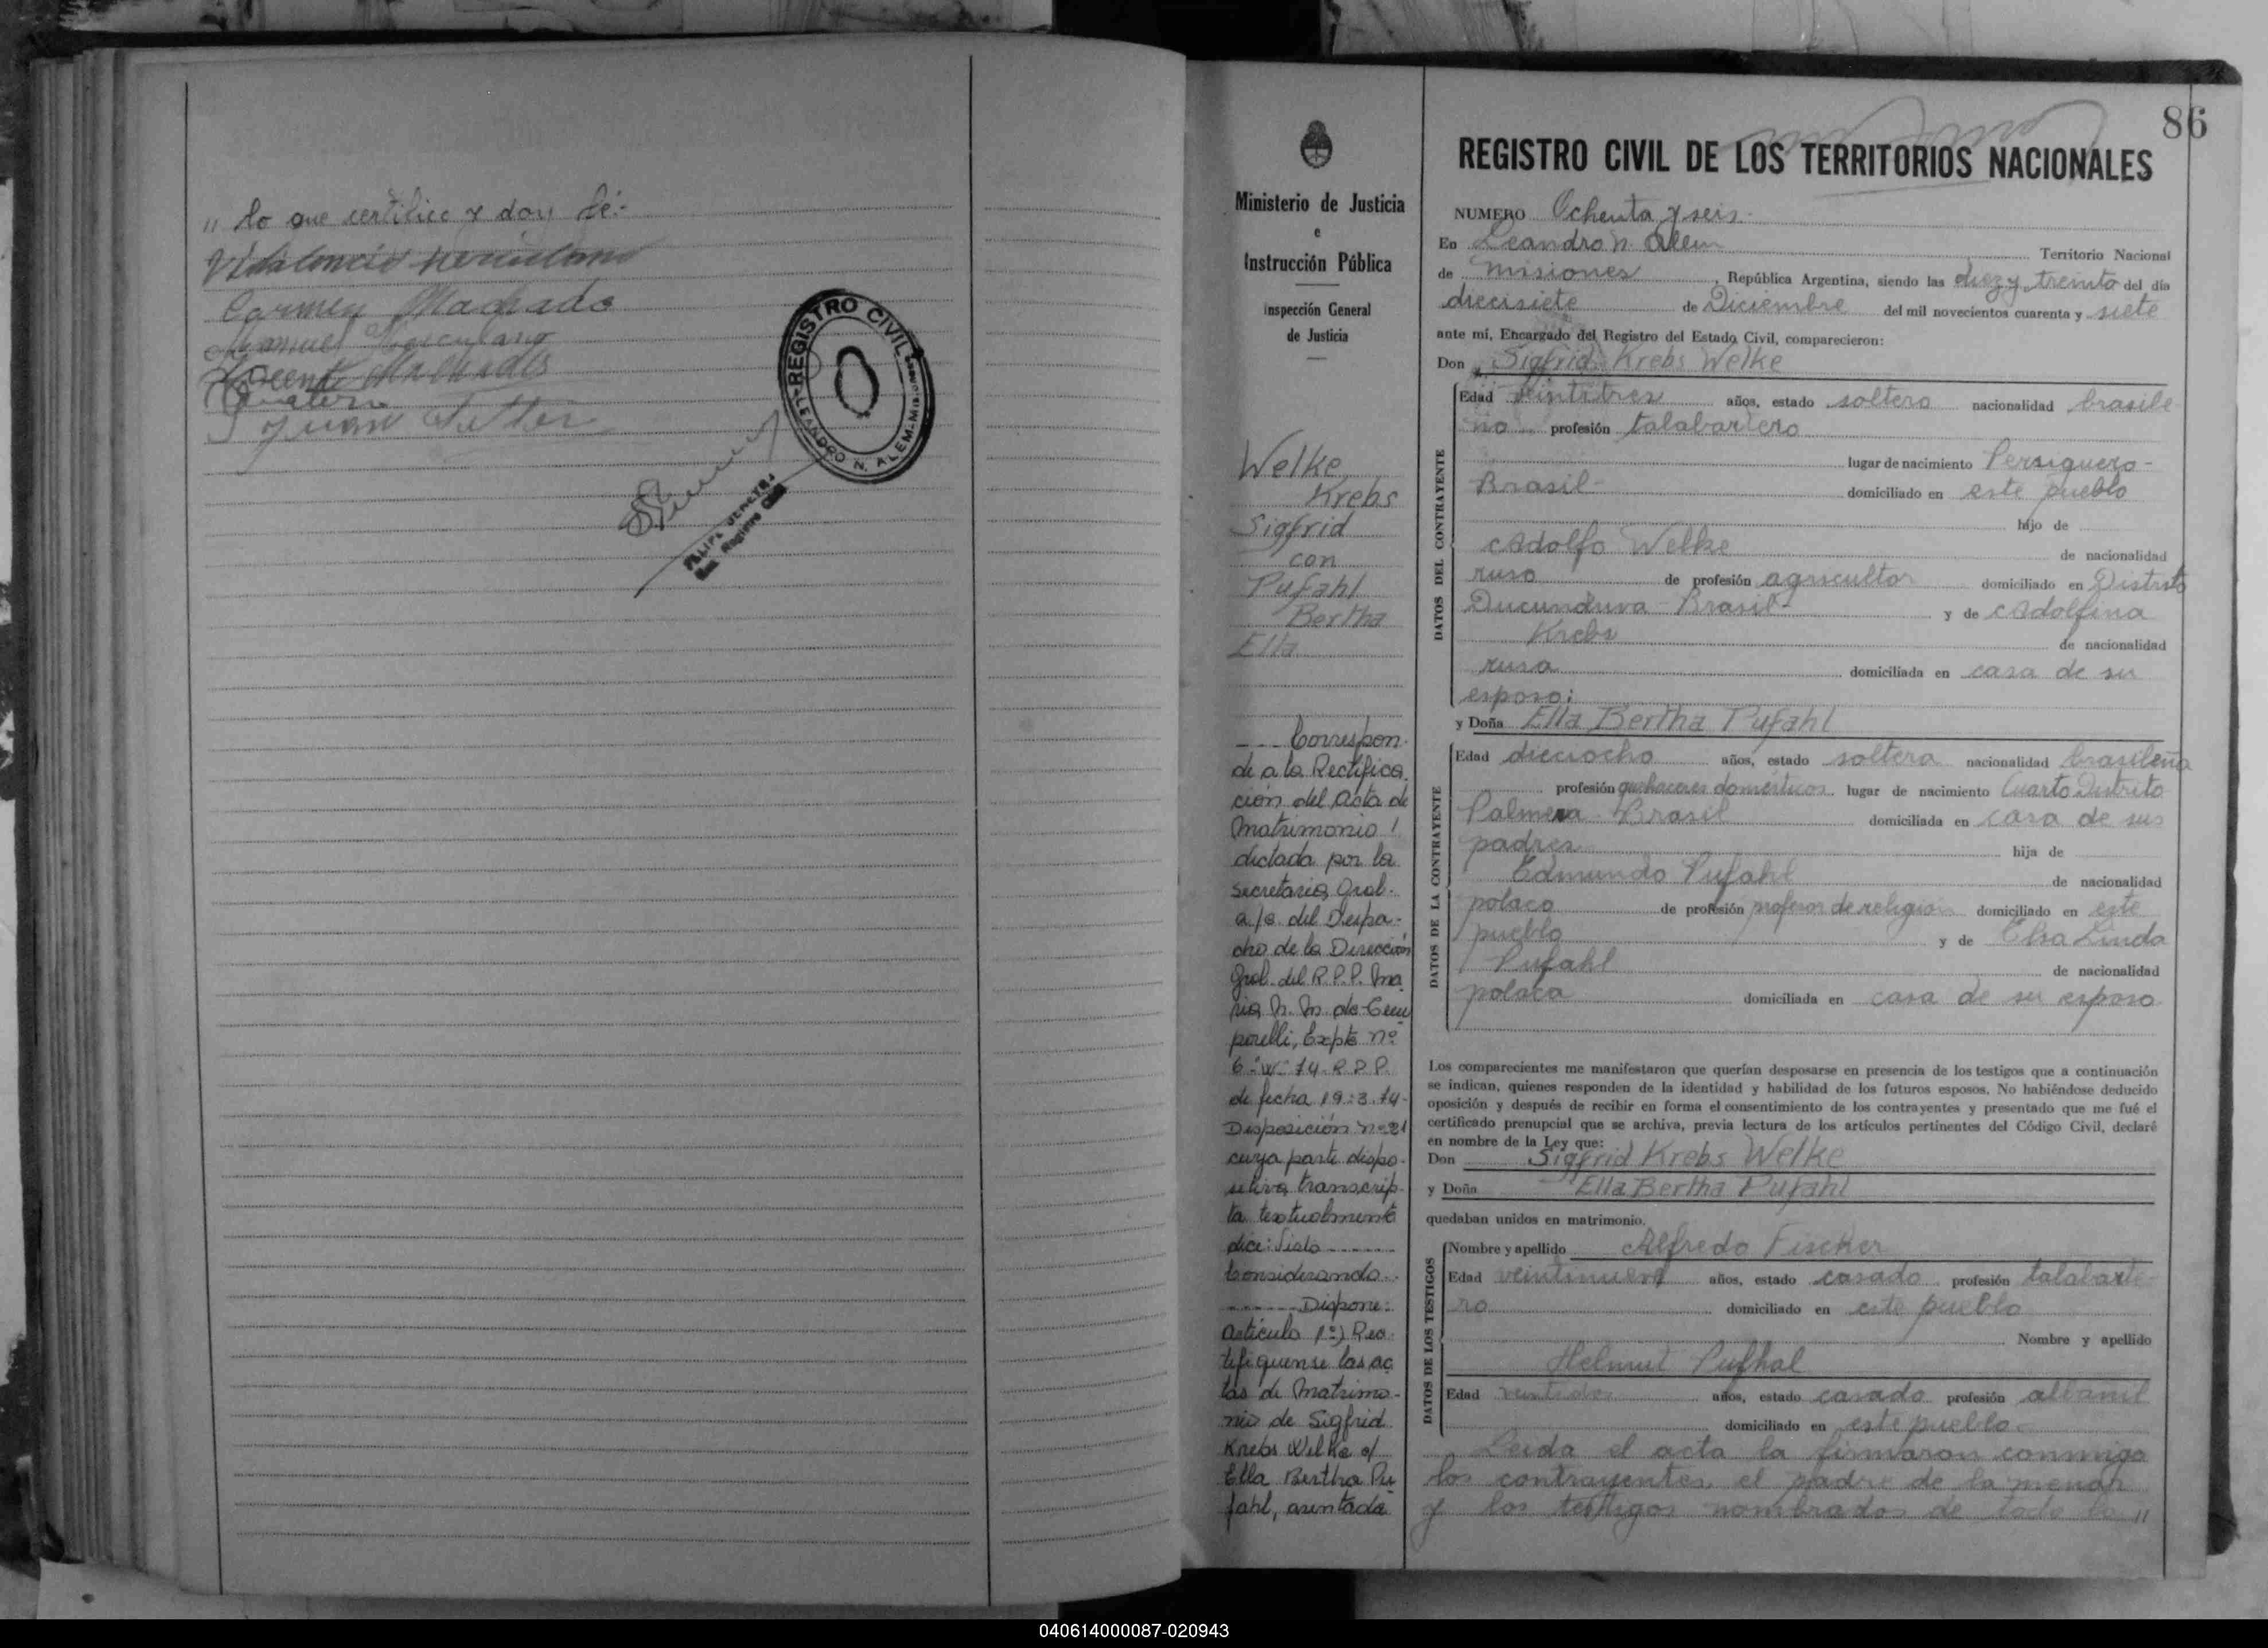 " lo que certifico y doy fé:-
Carmen Machado
Manuel
Vicente Machado
Juan
REGISTRO CIVIL
LEANDRO N. ALEM-MISIONES
Registro Civil
86
Ministerio de Justicia
e
Instrucción Pública
Inspección General
de Justicia
Welke
Krebs
Sigfrid
con
Pufahl
Bertha
Ella
---- Correspon-
de a la Rectifica-
ción del Acta de
Matrimonio!
dictada por la
Secretaria Gral.
a/c del Despa-
cho de la Dirección
Gral. del R.P.P. Ma-
ria N. M. de Cem
porelli, Expte nº
6-"W"-74-R.P.P.
de fecha 19:3.74-
Disposición nº 21
cuya parte dispo-
sitiva transcrip-
ta textualmente
dice: Visto -------
Considerando..
------- Dispone:
Artículo 1º) Rec-
tifiquense las ac
tas de Matrimo-
nio de Sigfrid
Krebs Welke c/
Ella Bertha Pu
fahl, asentada
REGISTRO CIVIL DE LOS TERRITORIOS NACIONALES
NUMERO Ochenta y seis.-
En Leandro N. Alem Territorio Nacional
de Misiones, República Argentina, siendo las diez y treinta del día
diecisiete de Diciembre del mil novecientos cuarenta y siete
ante mí, Encargado del Registro del Estado Civil, comparecieron:
Don Sigfrid Krebs Welke
DATOS DEL CONTRAYENTE
Edad veintitres años, estado soltero nacionalidad brasile
ño profesión talabartero
lugar de nacimiento Persiguero-
Brasil- domiciliado en este pueblo
hijo de
Adolfo Welke de nacionalidad
ruso de profesión agricultor domiciliado en Distrito
Ducunduva - Brasil- y de Adolfina
Krebs de nacionalidad
rusa domiciliada en casa de su
esposo;
y Doña Ella Bertha Pufahl
DATOS DE LA CONTRAYENTE
Edad dieciocho años, estado soltera nacionalidad brasileña
profesión quehaceres domésticos lugar de nacimiento Cuarto Distrito
Palmera - Brasil domiciliada en casa de sus
padres hija de
Edmundo Pufahl de nacionalidad
polaco de profesión profesor de religion domiciliado en este
pueblo y de Elsa Linda
Pufahl de nacionalidad
polaca domiciliada en casa de su esposo
Los comparecientes me manifestaron que querían desposarse en presencia de los testigos que a continuación
se indican, quienes responden de la identidad y habilidad de los futuros esposos. No habiéndose deducido
oposición y después de recibir en forma el consentimiento de los contrayentes y presentado que me fué el
certificado prenupcial que se archiva, previa lectura de los artículos pertinentes del Código Civil, declaré
en nombre de la Ley que:
Don Sigfrid Krebs Welke
y Doña Ella Bertha Pufahl
quedaban unidos en matrimonio.
DATOS DE LOS TESTIGOS
Nombre y apellido Alfredo Fischer
Edad veintinueve años, estado casado profesión talabarte-
ro domiciliado en este pueblo
Nombre y apellido
Helmut Pufhal
Edad veintidos años, estado casado profesión albañil
domiciliado en este pueblo-
Leida el acta la firmaron conmigo
los contrayentes, el padre de la menor
y los testigos nombrados de todo lo "
040614000087-020943